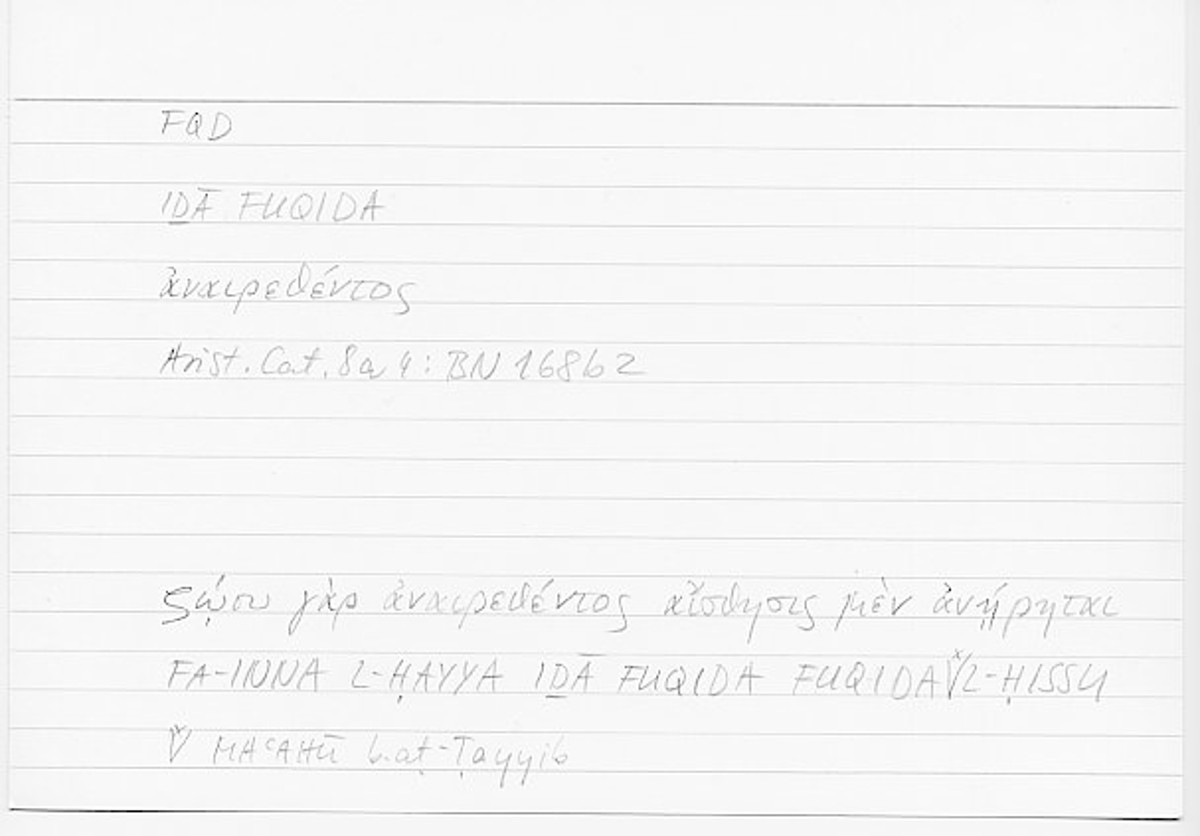 FQD
IḎĀ FUQIDA
ἀναιρεθέντος
Arist. Cat. 8a4: BN 168b2
ζῴου γὰρ ἀναιρεθέντος αἴσθησις μὲν ἀνῄρηται
FA-INNA L-ḤAYYA IḎĀ FUQIDA FUQIDA ˣ√ L-ḤISSU
ˣ√ MAʿAHŪ b.aṭ-Ṭayyib